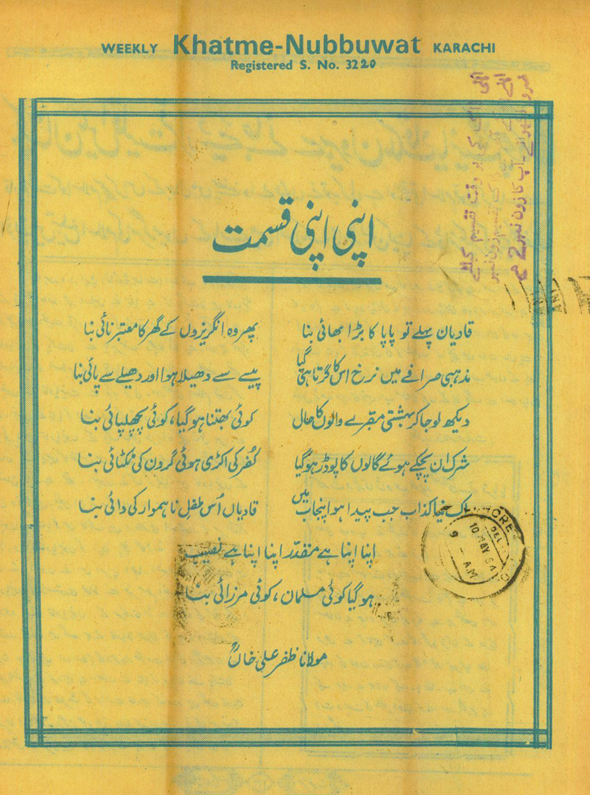 WEEKLY Khatme-Nubbuwat KARACHI
Registered S. No. 3220
اپنی اپنی قسمت
قادیان پہلے تو پاپا کا بڑا بھائی بنا
پھر وہ انگریزوں کے گھر کا معتبر نائی بنا
مذہبی صرافے میں نرخ اس کا گرتا ہی گیا
پیسے سے دھیلا ہوا اور دھیلے سے پائی بنا
دیکھ لو جا کر بہشتی مقبرے والوں کا حال
کوئی بھتنا ہوگیا، کوئی پچھلپائی بنا
شرک ان پچکے ہوئے گالوں کا پوڈر ہوگیا
کفر کی اکڑی ہوئی گردن کی نکٹائی بنا
اک نیا کذاب جب پیدا ہوا پنجاب میں
قادیاں اُس طفلِ ناہموار کی دائی بنا
اپنا اپنا ہے مقدر اپنا اپنا ہے نصیب
ہوگیا کوئی مسلمان، کوئی مرزائی بنا
مولانا ظفر علی خاںؒ
10 MAY 84
9 A.M